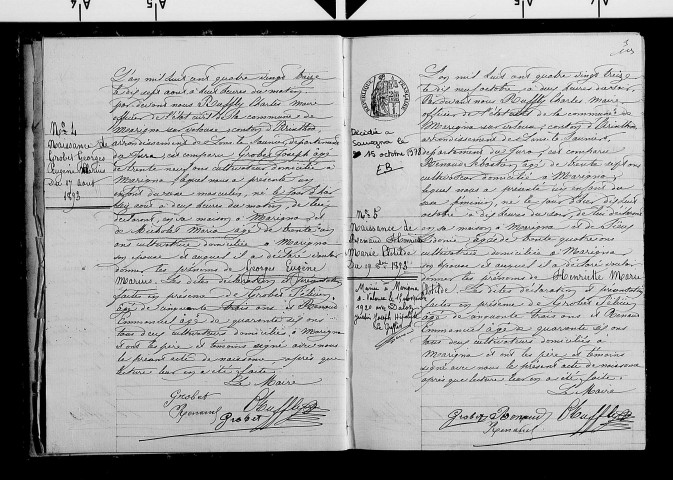 N° 4
Naissance de
Grobet Georges
Eugène Marius
Du 17 août
1893
L'an mil huit cent quatre vingt treize
le dix sept août à huit heures du matin
par devant nous Ruffly Charles maire
officier de l'état civil de la commune de
Marigna sur valouse, canton d'Arinthod
arrondissement de Lons le Saunier, département
du Jura, est comparu Grobet Joseph âgé
de trente neuf ans cultivateur domicilié à
Marigna, lequel nous a présenté un
enfant du sexe masculin, né le
à deux heures du matin, de lui
déclarant, en sa maison à Marigna et
de Michalet Maria âgé de trente
ans cultivatrice domiciliée à Marigna
son épouse et auquel il a déclaré vouloir
donner les prénoms de Georges Eugène
Marius. Les dites déclaration et présentation
faites en présence de Grobet
âgé de cinquante trois ans et Renaud
Emmanuel âgé de quarante six ans
tous deux cultivateurs domiciliés à Marigna
et ont les père et témoins signé avec nous
le présent acte de naissance après que
lecture leur en a été faite.
Le Maire
Grobet
Renaud
Grobet
Décédée à
le
15 octobre 1978
N° 5
Naissance de
Renaud Henriette
Marie
Du 19 8bre 1893
Mariée à Marigna
s. Valouse le
1920 avec
Joseph
L'an mil huit cent quatre vingt treize
le dix neuf octobre à deux heures du soir,
Par devant nous Ruffly Charles Maire
officier de l'état civil de la commune de
Marigna sur valouse, canton d'Arinthod
arrondissement de Lons le Saunier,
département du Jura, est comparu
Renaud Sébastien, âgé de trente sept ans
cultivateur domicilié à Marigna,
lequel nous a présenté un enfant du
sexe féminin, né le jour d'hier dix huit
octobre à dix heures du soir, de lui déclarant
en sa maison à Marigna et de
âgée de trente quatre ans
cultivatrice domiciliée à Marigna
son épouse et auquel il a déclaré vouloir
donner les prénoms de Henriette Marie
Les dites déclaration et présentation
faites en présence de Grobet
âgé de cinquante trois ans et Renaud
Emmanuel âgé de quarante six ans
tous deux cultivateurs domiciliés à
Marigna et ont les père et témoins
signé avec nous le présent acte de naissance
après que lecture leur en a été faite.
Le Maire
Grobet Renaud
Renaud